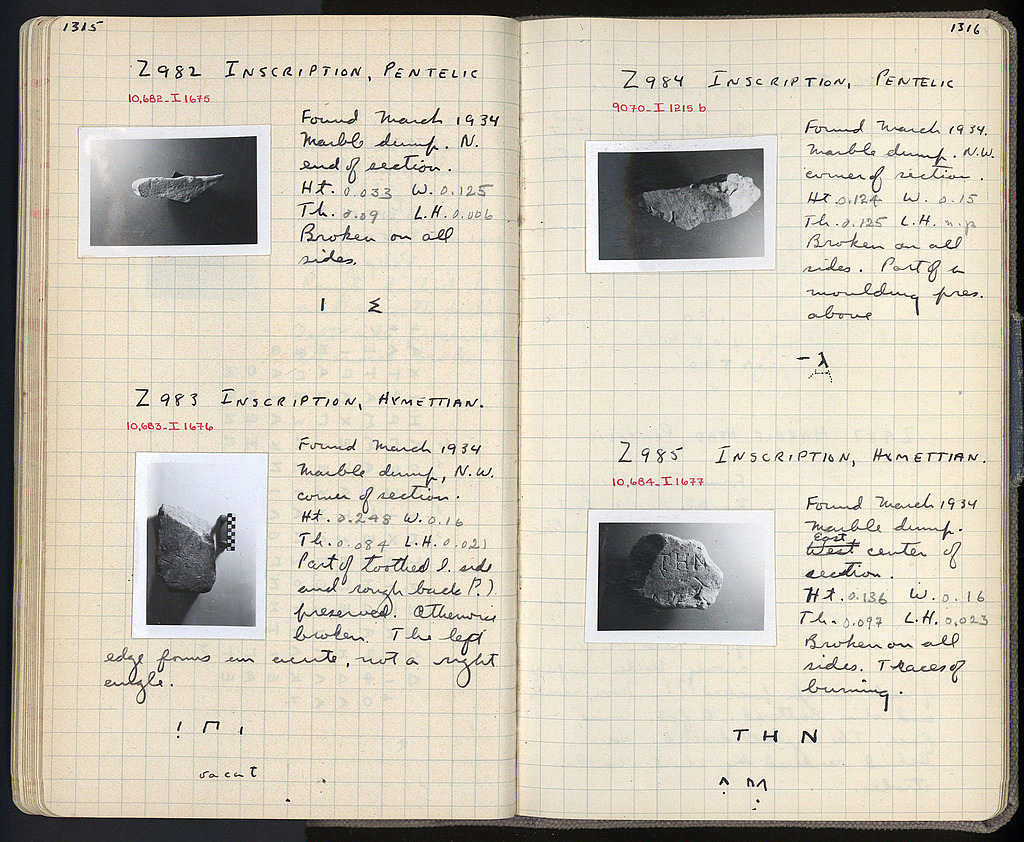 1315
Z982 INSCRIPTION, PENTELIC
10,682-I 1675
Found March 1934
Marble dump. N.
end of section.
Ht. 0.033 W. 0.125
Th. 0.09 L.H. 0.006
Broken on all
sides.
Ι Σ
Z983 INSCRIPTION, HYMETTIAN.
10,683-I 1676
Found March 1934
Marble dump, N.W.
corner of section.
Ht. 0.248 W. 0.16
Th. 0.084 L.H. 0.021
Part of toothed l. side
and rough back (?)
preserved. Otherwise
broken. The left
edge forms an acute, not a right
angle.
Π
vacat
1316
Z984 INSCRIPTION, PENTELIC
9070-I 1215 b
Found March 1934.
Marble dump. N.W.
corner of section.
Ht 0.124 W. 0.15
Th. 0.125 L.H. n.p
Broken on all
sides. Part of a
moulding pres.
above
Z985 INSCRIPTION, HYMETTIAN.
10,684-I 1677
Found March 1934
Marble dump.
East
West center of
section.
Ht. 0.136 W. 0.16
Th. 0.097 L.H. 0.023
Broken on all
sides. Traces of
burning.
THN
ΤΗΝ